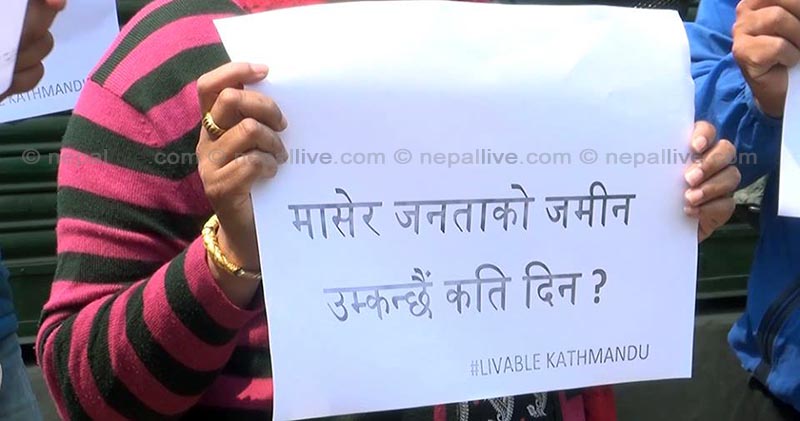 E KATHMANDU
© nepallive.com © nepallive.com © nepallive.com © nepallive.com ©
मासेर जनताको जमीन
उम्कन्छौं कति दिन ?
#LIVABLE KATHMANDU